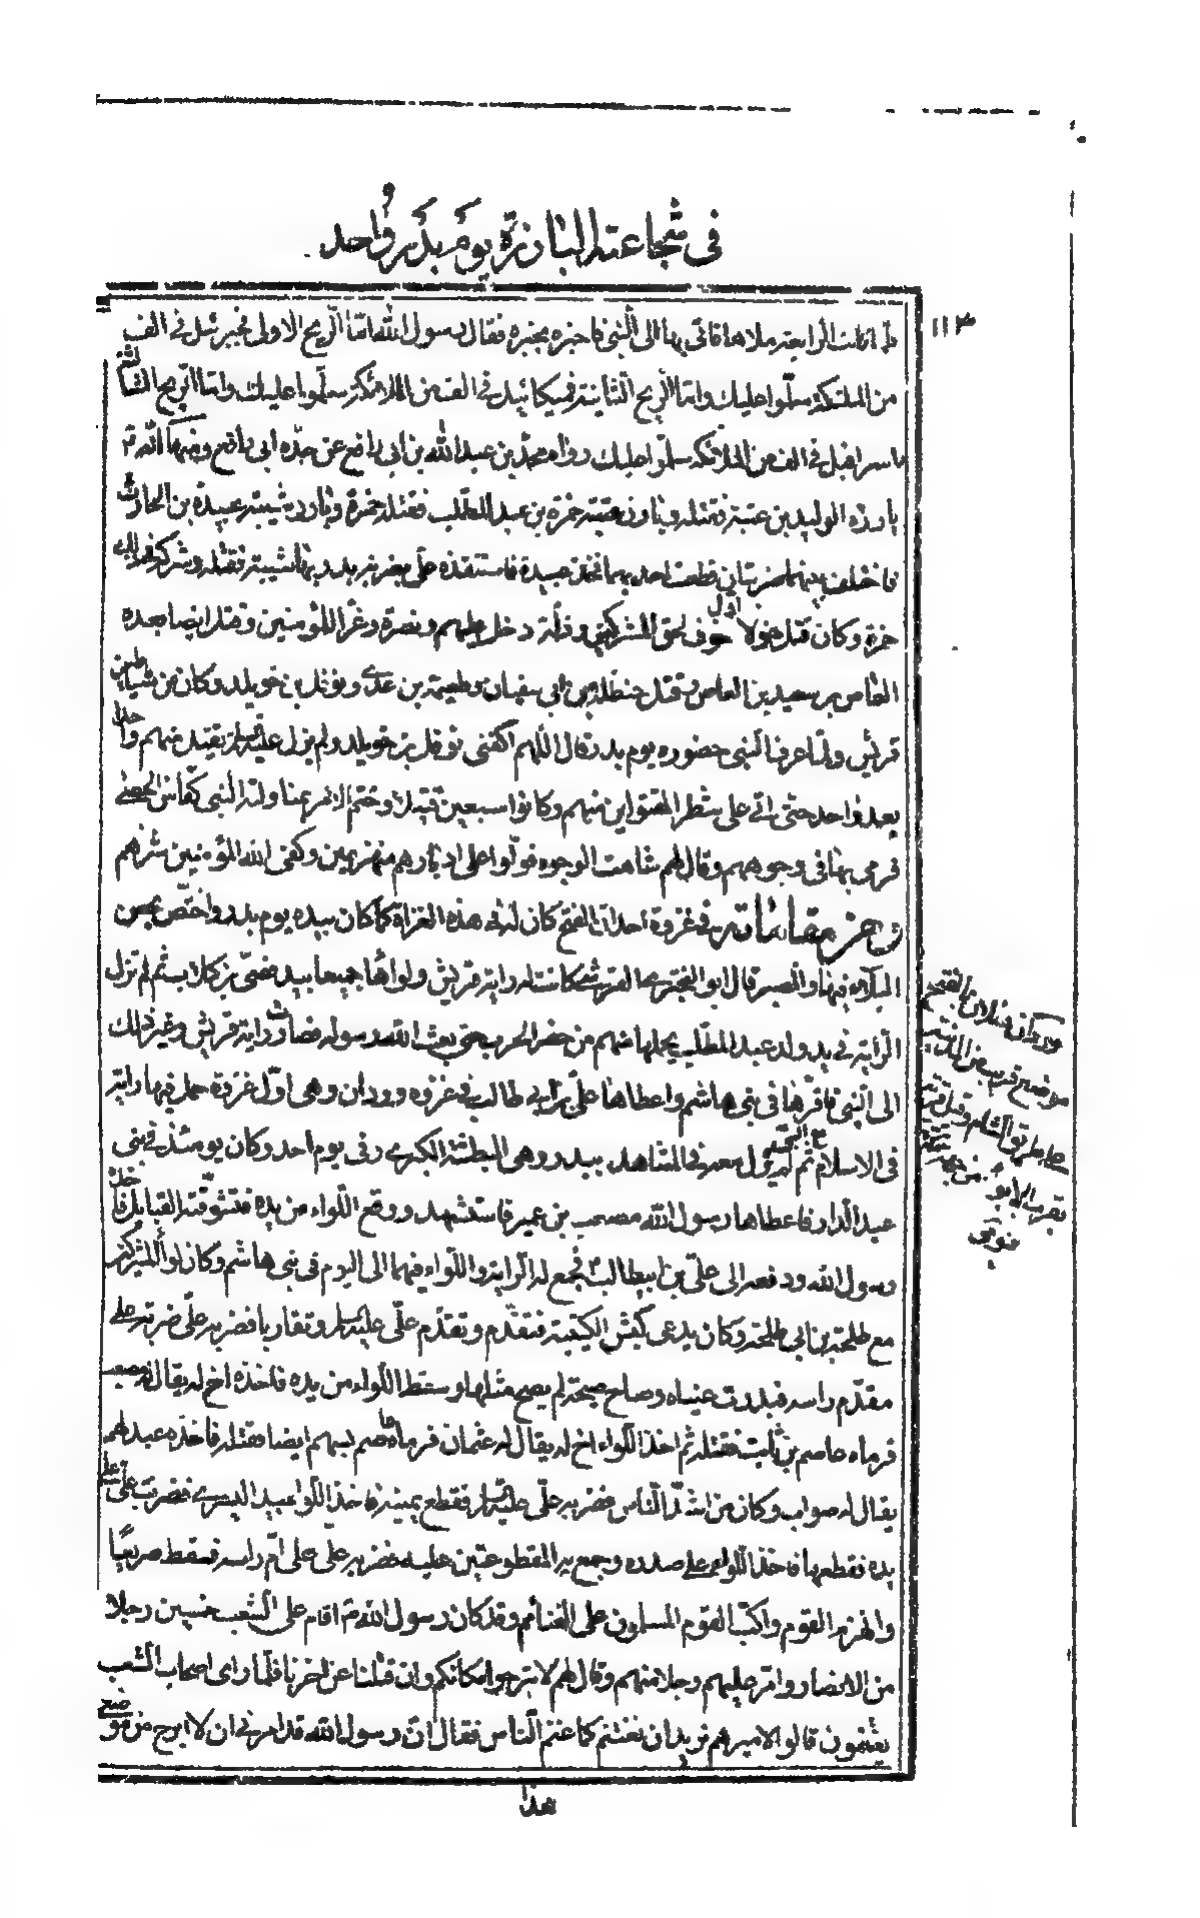 في شجاعته البارزة يوم بدر واحد
١١٣
فلما كانت الرابعة ملاها فاتى بها الى النبي فاخبره بخبره فقال رسول الله اما الريح الاولى فجبرئيل في الف
من الملئكة سلموا عليك واما الريح الثانية فميكائيل في الف من الملائكة سلموا عليك واما الريح الثالثة
فاسرافيل في الف من الملائكة سلموا عليك روى محمد بن عبد الله بن ابي رافع عن جده ابي رافع
بارزه الوليد بن عتبة فقتله وبارز عتبة حمزة بن عبد المطلب فقتله حمزة وبارز شيبة عبيدة بن الحارث
فاختلف بينهما ضربتان قطعت احديهما فخذ عبيدة فاستنقذه علي بضربة بدر بها شيبة فقتله وشركه في ذلك
حمزة وكان قتل هؤلاء اول خوف لحق المشركين وذلة دخل عليهم ونصرة وعز المؤمنين وقتل ايضا بعده
العاص بن سعيد بن العاص وقتل حنظلة بن ابي سفيان وطعيمة بن عدي ونوفل بن خويلد وكان من شياطين
قريش ولما عرف النبي حضوره يوم بدر قال اللهم اكفني نوفل بن خويلد ولم يزل عليه السلام يقتل منهم واحدا
بعد واحد حتى اتى على شطر المقتولين منهم وكانوا سبعين قتيلا وختم الامر بمناولة النبي كفا من الحصى
فرمى بها في وجوههم وقال لهم شاهت الوجوه فولوا على ادبارهم منهزمين وكفى الله المؤمنين شرهم
ومن مقاماته في غزوة احد ان الفتح كان له في هذه الغزاة كما كان بيده يوم بدر واختص بحسن
البلاء فيها والصبر قال ابو البختري القرشي كانت راية قريش ولوائها جميعا بيد قصي بن كلاب ثم لم تزل
الراية في يد ولد عبد المطلب يحملها منهم من حضر الحرب حتى بعث الله رسوله فصارت راية قريش وغير ذلك
الى النبي فاقرها في بني هاشم واعطاها علي بن ابي طالب في غزوة وودان وهي اول غزوة حمل فيها راية
في الاسلام مع النبي ثم لم يزل معه في المشاهد ببدر وهي البطشة الكبرى وفي يوم احد وكان يومئذ في بني
عبد الدار فاعطاها رسول الله مصعب بن عمير فاستشهد ووقع اللواء من يده فتشوقته القبايل فاخذه
رسول الله ودفعه الى علي بن ابيطالب فجمع له الراية واللواء فهما الى اليوم في بني هاشم وكان لواء المشركين
مع طلحة بن ابي طلحة وكان يدعى كبش الكتيبة فتقدم وتقدم علي عليه السلام وتقاربا فضربه علي ضربة على
مقدم راسه فبدرت عيناه وصاح صيحة لم يصح مثلها وسقط اللواء من يده فاخذه اخ له يقال له مصعب
فرماه عاصم بن ثابت فقتله ثم اخذ اللواء اخ له يقال له عثمان فرماه عاصم بسهم ايضا فقتله فاخذه عبد لهم
يقال له صواب وكان من اشد الناس فضربه علي عليه السلام فقطع يمينه فاخذ اللواء بيد اليسرى فضرب علي على
يده فقطعها فاخذ اللواء على صدره وجمع يديه المقطوعتين عليه فضربه علي على ام راسه فسقط صريعا
وانهزم القوم واكب القوم المسلمون على الغنائم وقد كان رسول الله اقام على الشعب خمسين رجلا
من الانصار وامر عليهم رجلا منهم وقال لهم لا تبرحوا مكانكم وان قتلنا عن اخرنا فلما راى اصحاب الشعب
يغنمون قالوا لاميرهم نريد ان نغتنم كما غنم الناس فقال ان رسول الله قد امرني ان لا ابرح من موضعي
هذا